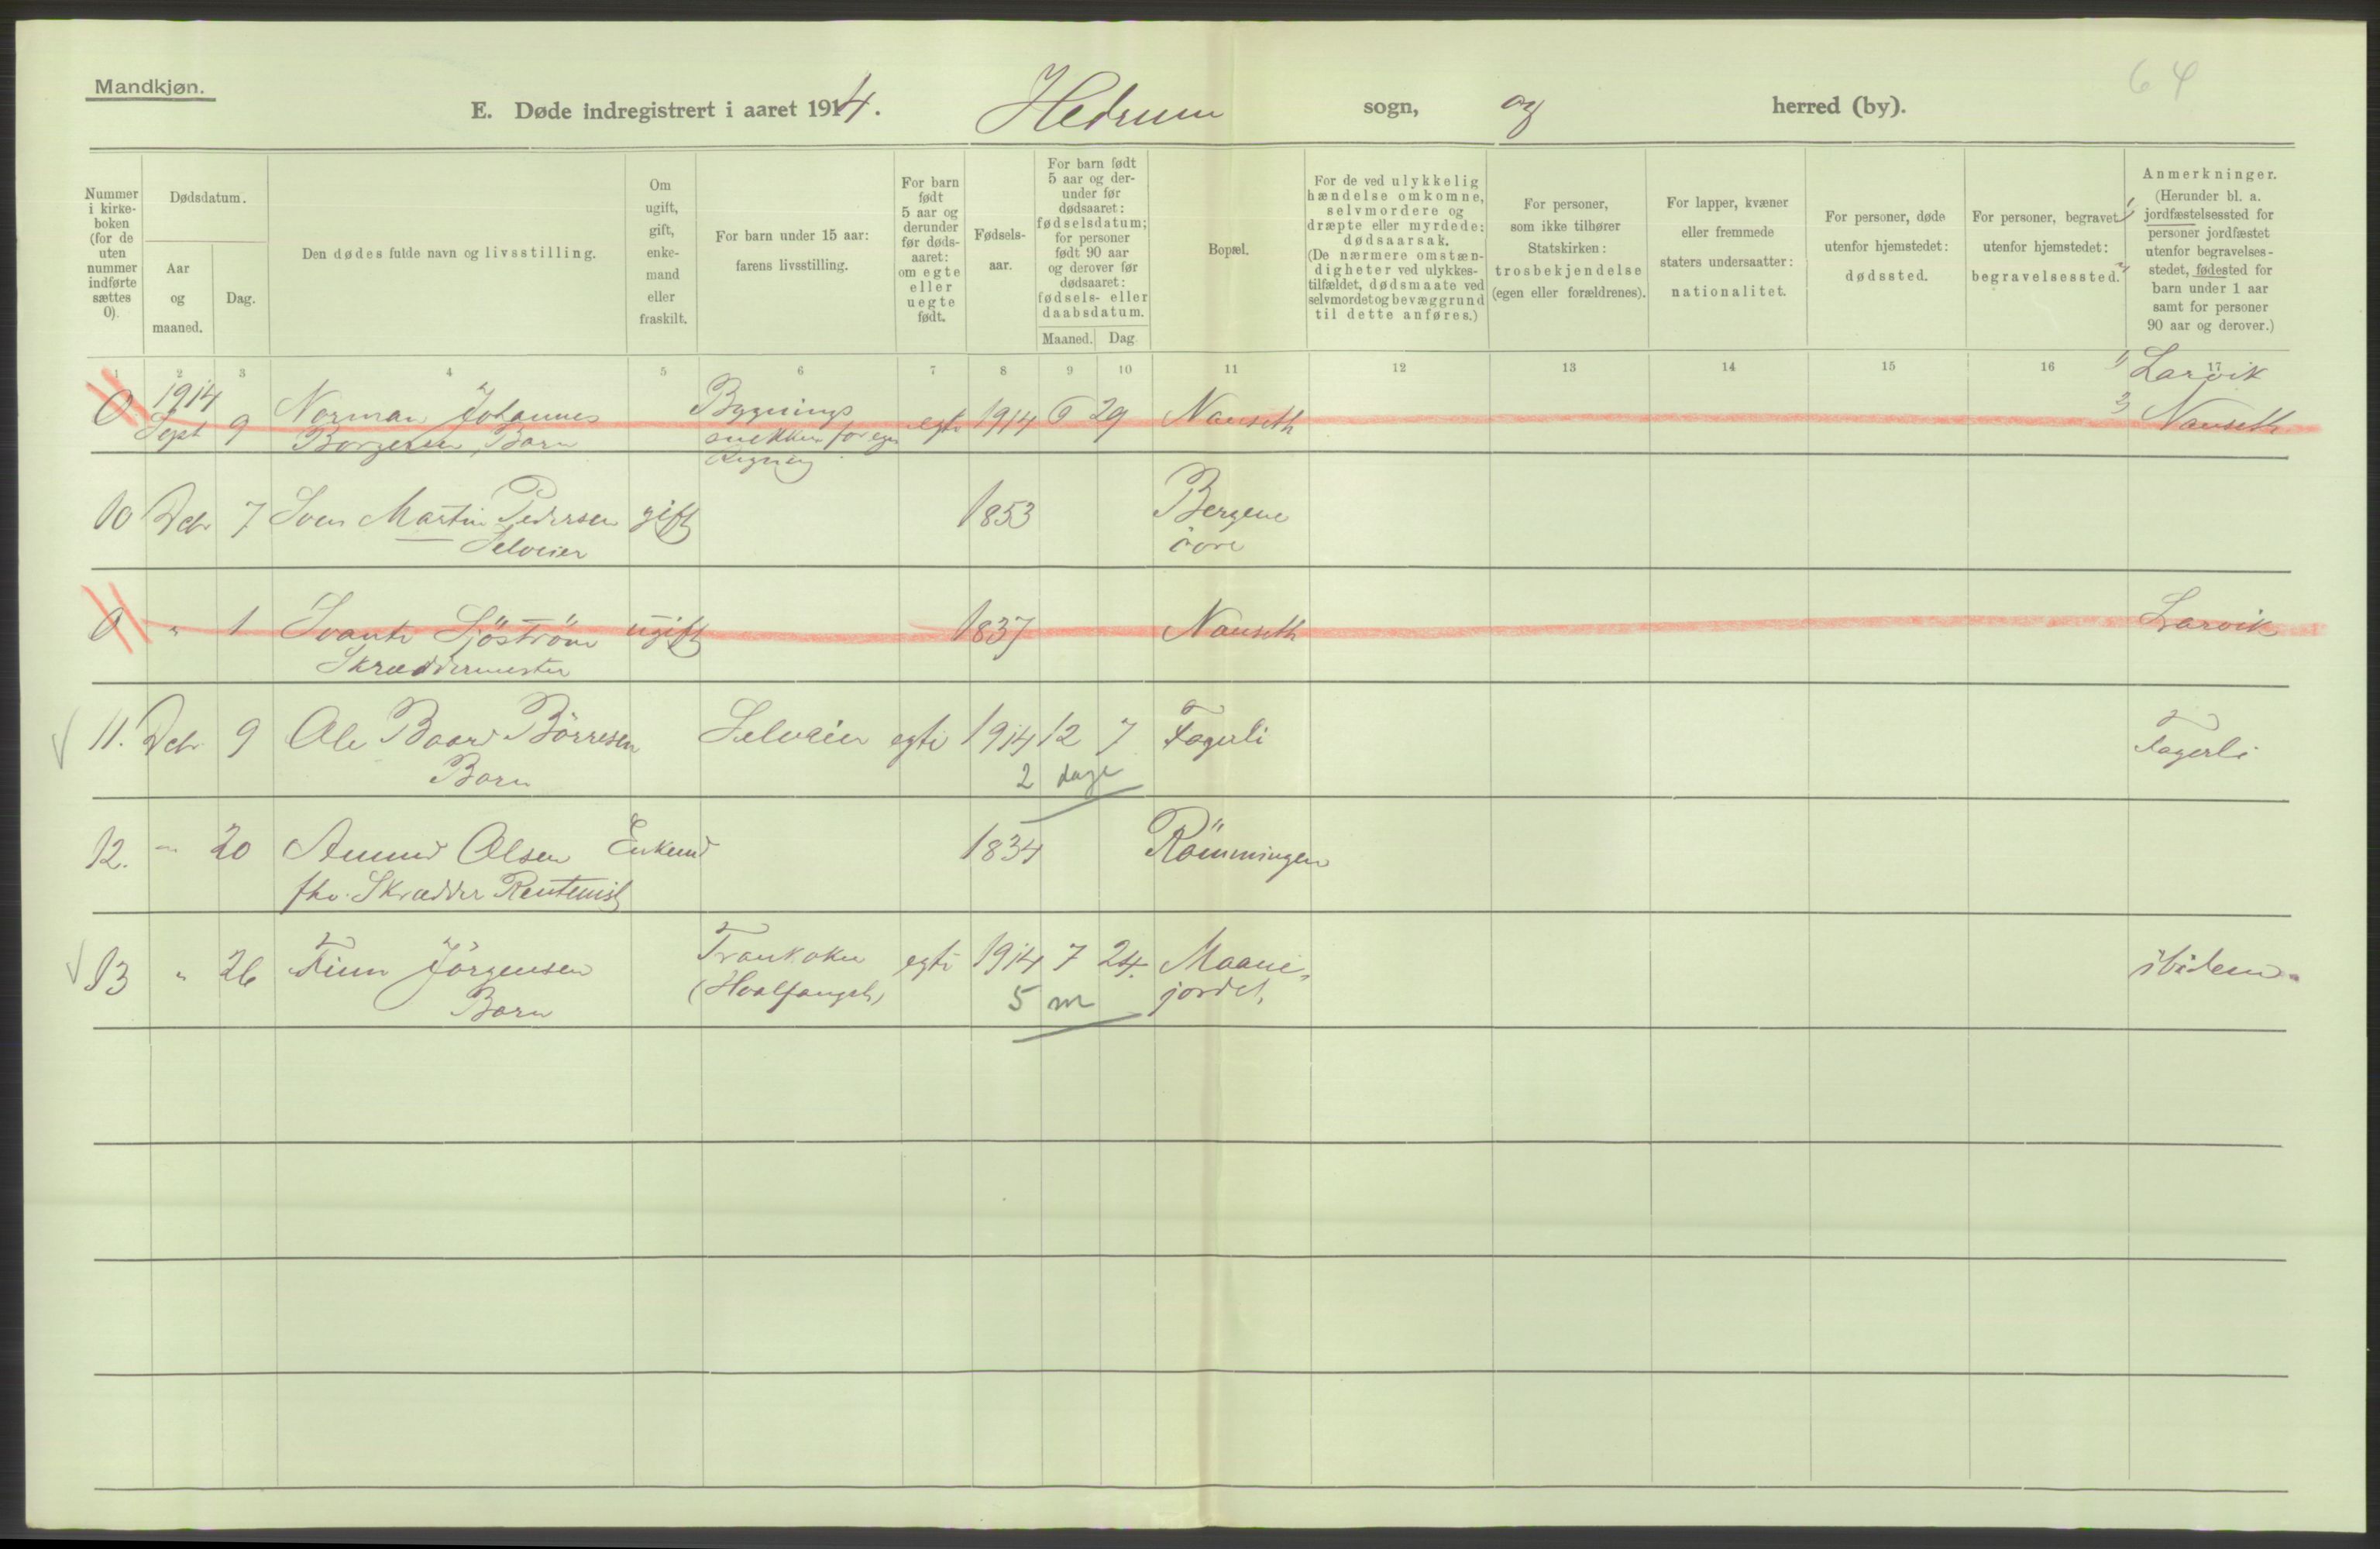 Mandkjøn.
64
E. Døde indregistrert i aaret 1914. Hedrum sogn, og herred (by).
Nummer i kirke-boken (for de uten nummer indførte sættes 0).
Dødsdatum.
Aar og maaned.
Dag.
Den dødes fulde navn og livsstilling.
Om ugift, gift, enke-mand eller fraskilt.
For barn under 15 aar: farens livsstilling.
For barn født 5 aar og derunder før døds-aaret: om egte eller uegte født.
Fødsels-aar.
For barn født 5 aar og der-under før dødsaaret: fødselsdatum; for personer født 90 aar og derover før dødsaaret: fødsels- eller daabsdatum.
Maaned. Dag
Bopæl.
For de ved ulykkelig hændelse omkomne, selvmordere og dræpte eller myrdede: dødsaarsak. (De nærmere omstæn-digheter ved ulykkes-tilfældet, dødsmaate ved selvmordet og bevæggrund til dette anføres.)
For personer, som ikke tilhører Statskirken: trosbekjendelse (egen eller forældrenes).
For lapper, kvæner eller fremmede staters undersaatter: nationalitet.
For personer, døde utenfor hjemstedet: dødssted.
For personer, begravet utenfor hjemstedet: begravelsessted.
Anmerkninger. (Herunder bl. a. 1) jordfæstelsessted for personer jordfæstet utenfor begravelses-stedet, 2) fødested for barn under 1 aar samt for personer 90 aar og derover.)
1 2 3 4 5 6 7 8 9 10 11 12 13 14 15 16 17
0 1914 Sept 9 Norman Johannes Bygnings egte 1914 6 29 Nanseth 1) Larvik
Borgersen, Barn snekker for egen 2) Nanseth
Regning
10 Dcbr 7 Sven Martin Pedersen gift 1853 Bergene
Selveier övre
0 " 1 Svante Sjöström ugift 1837 Nanseth Larvik
Skræddermester
11. Dcbr 9 Ole Baard Börresen Selveier egte 1914 12 7 Fagerli Fagerli
Barn 2 dage
12. " 20 Amund Olsen Enkemd 1834 Römmingen
fhv. Skrædder Rentenist
13 " 26 Finn Jörgensen Trankoker egte 1914 7 24. Maane-
Barn (Hvalfangst) 5 m jordet, ibidem